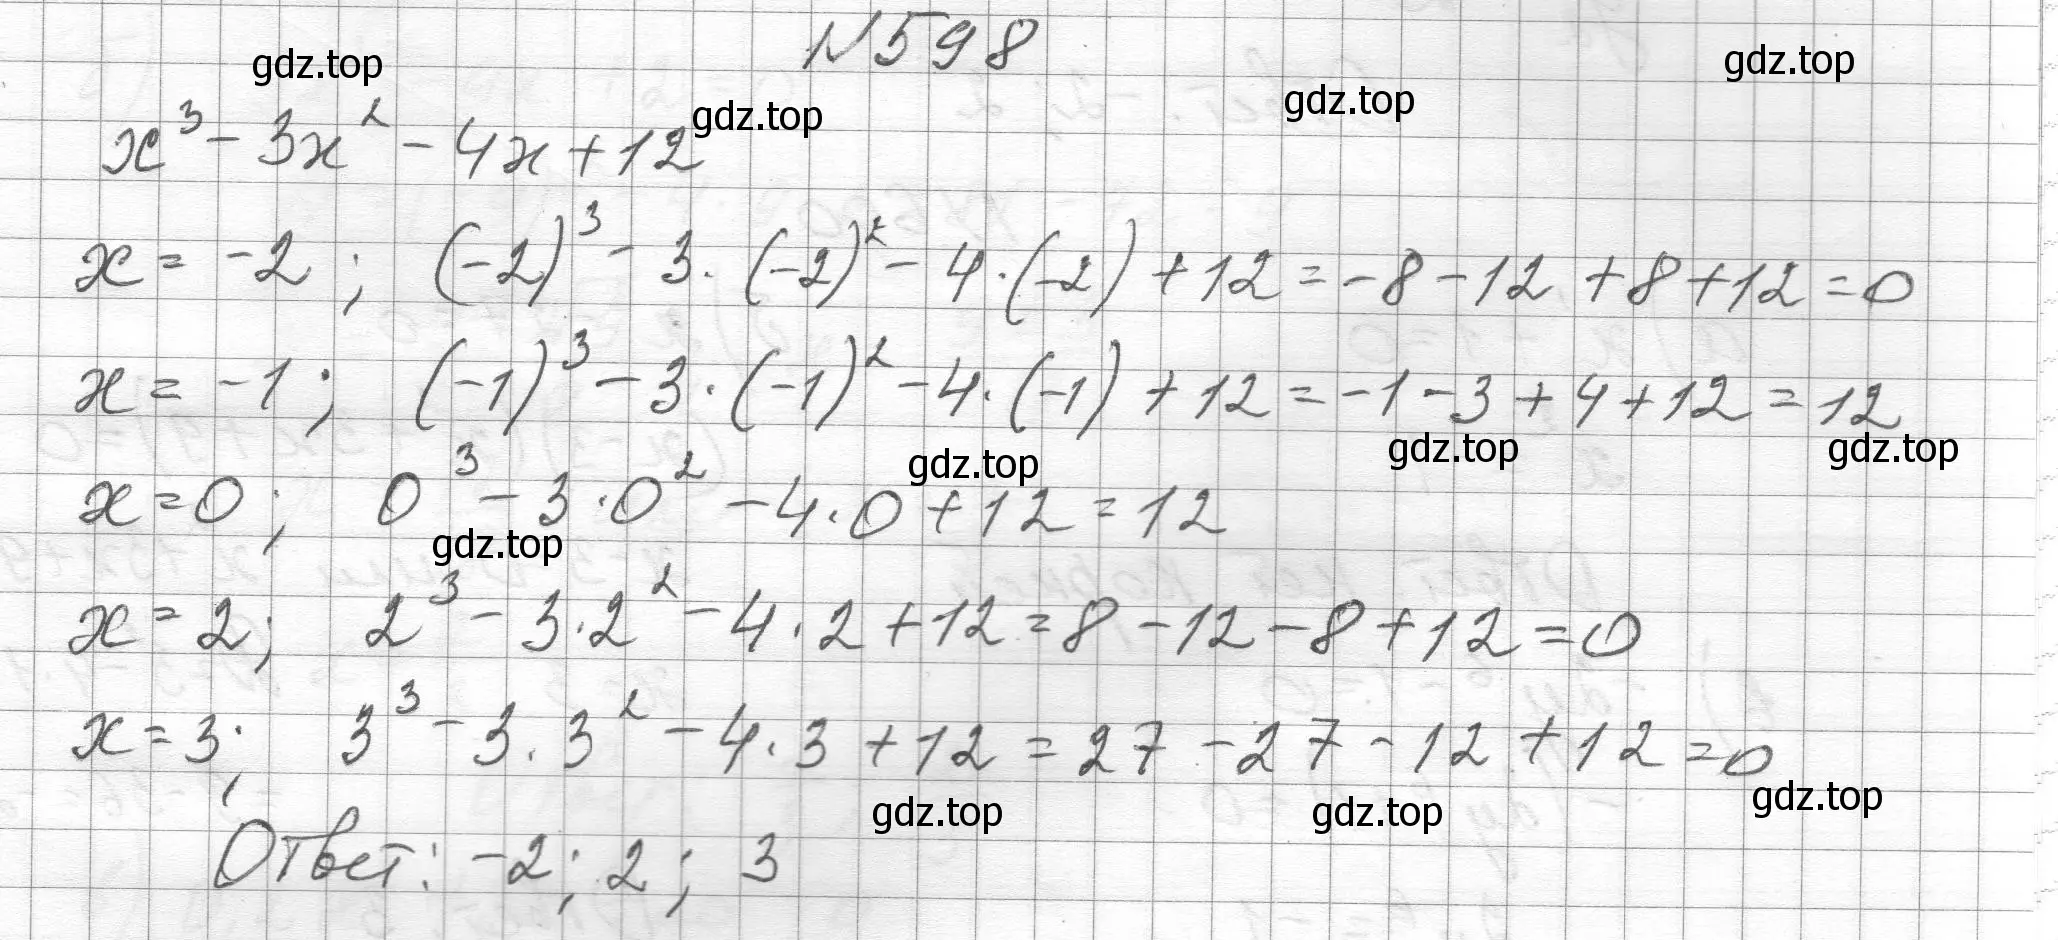 №598
x³ - 3x² - 4x + 12
x = -2; (-2)³ - 3·(-2)² - 4·(-2) + 12 = -8 - 12 + 8 + 12 = 0
x = -1; (-1)³ - 3·(-1)² - 4·(-1) + 12 = -1 - 3 + 4 + 12 = 12
x = 0; 0³ - 3·0² - 4·0 + 12 = 12
x = 2; 2³ - 3·2² - 4·2 + 12 = 8 - 12 - 8 + 12 = 0
x = 3; 3³ - 3·3² - 4·3 + 12 = 27 - 27 - 12 + 12 = 0
Ответ: -2; 2; 3
gdz.top
gdz.top
gdz.top
gdz.top
gdz.top
gdz.top
gdz.top
gdz.top
gdz.top
gdz.top
gdz.top